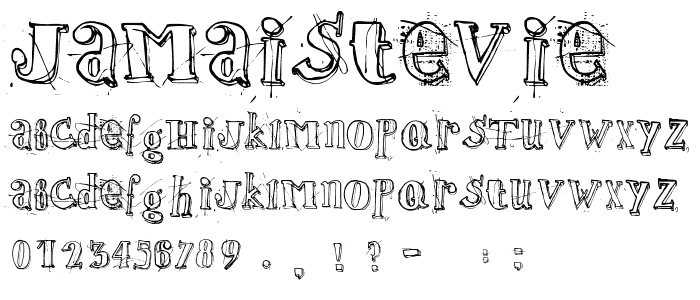 JaMaiSteVie
abcdefgHiJklMnopqrSTuvwxyz
abcdefghiJklMnopqrstuvwxyz
0123456789 . , ! ? - : ;